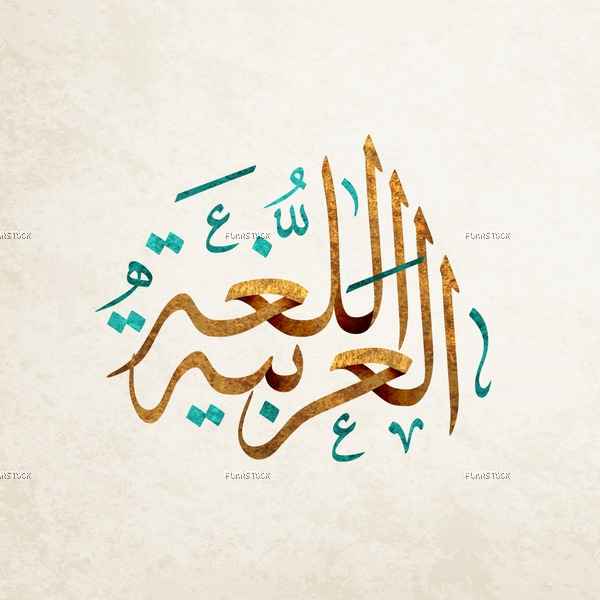 اللغة العربية
FUARSTOCK FUARSTOCK FUARSTOCK
FUARSTOCK FUARSTOCK FUARSTOCK